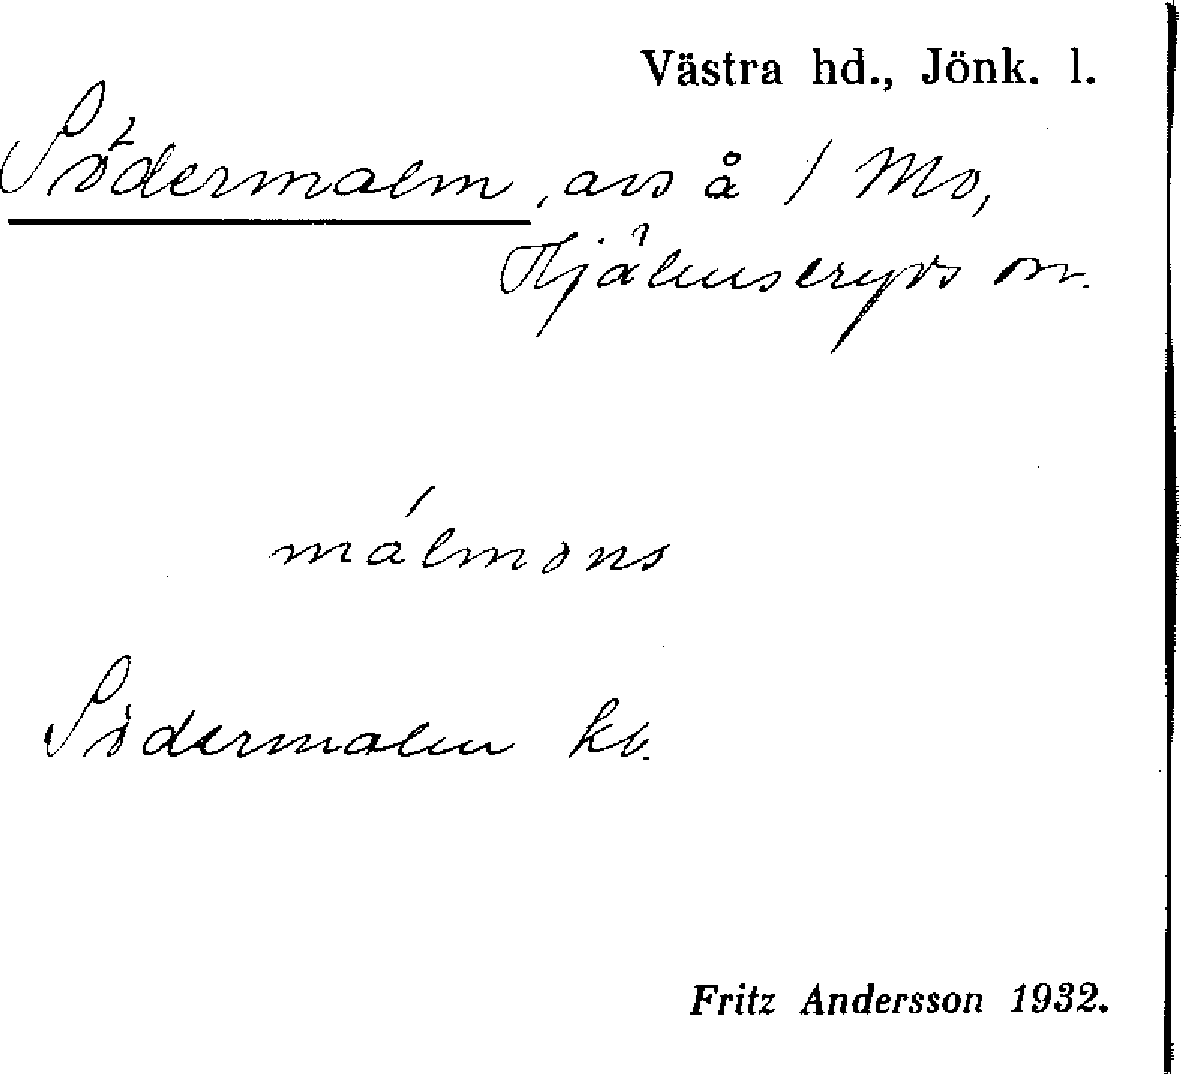 Västra hd., Jönk. l.
Södermalm, avs å 1 Mo,
Hjälmseryds sn.
málmons
Södermalm kb.
Fritz Andersson 1932.